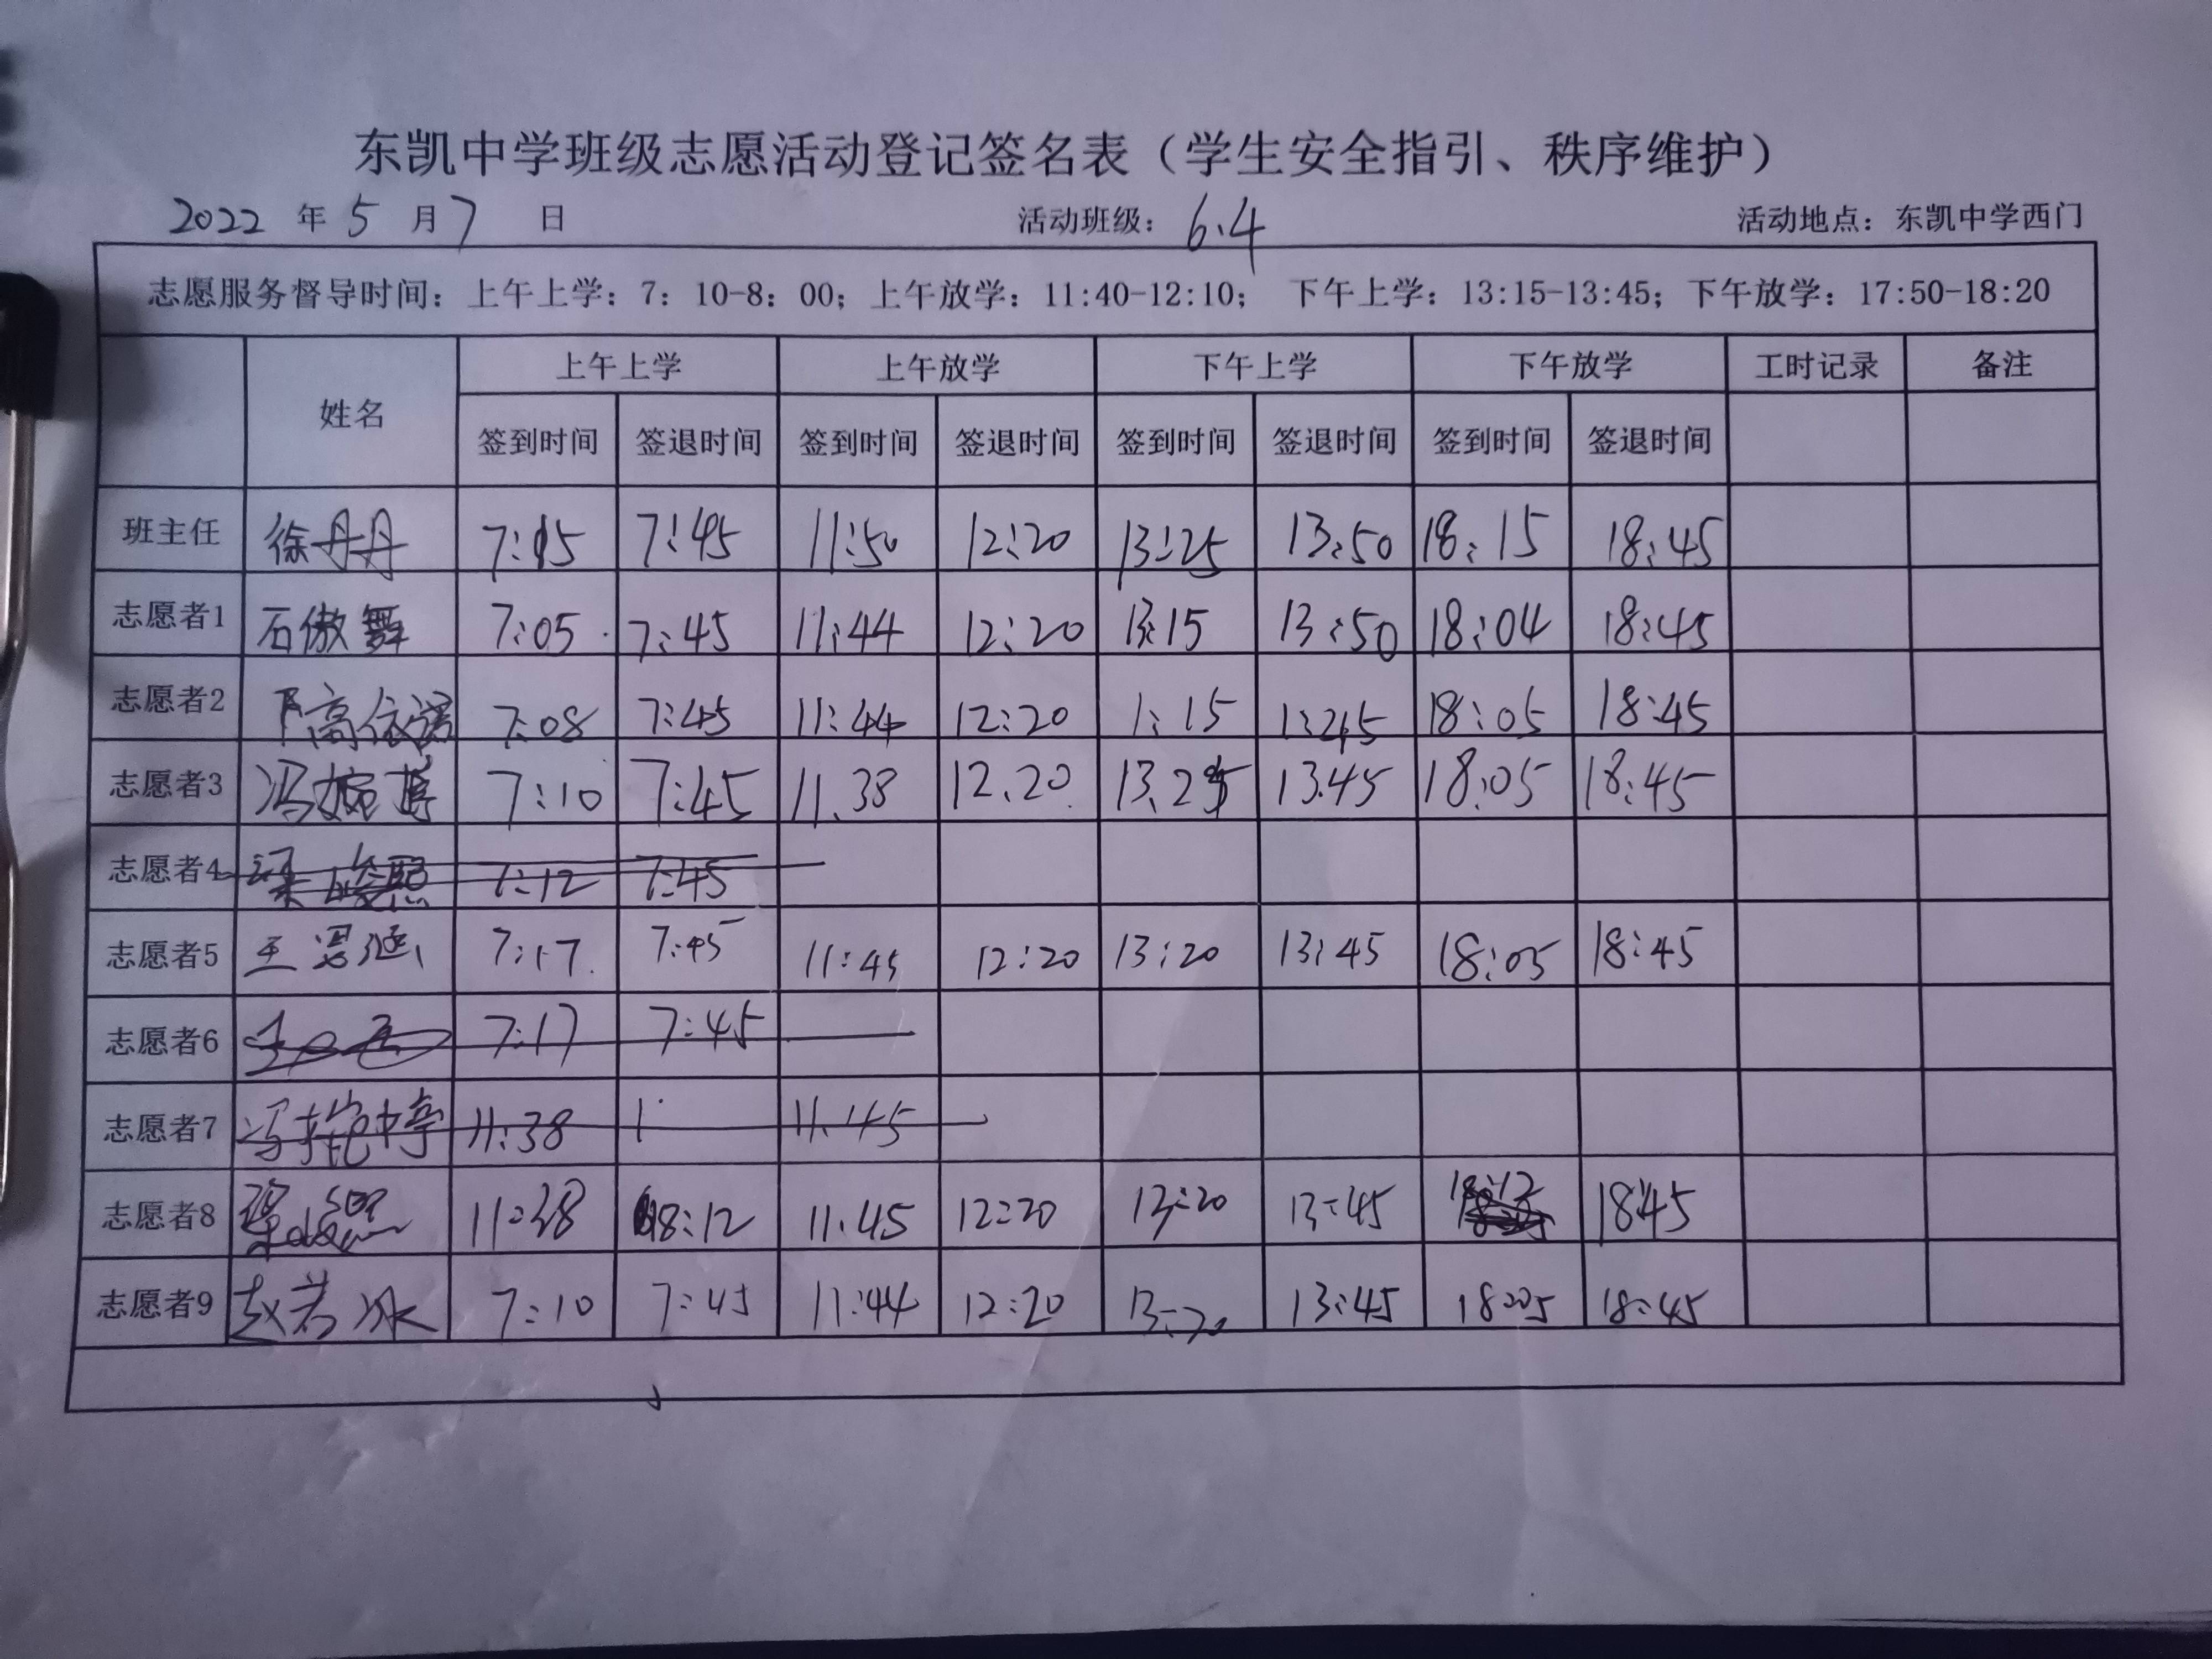 东凯中学班级志愿活动登记签名表（学生安全指引、秩序维护）
2022 年 5 月 7 日 活动班级：6.4 活动地点：东凯中学西门
志愿服务督导时间：上午上学：7：10-8：00；上午放学：11:40-12:10； 下午上学：13:15-13:45；下午放学：17:50-18:20
姓名 上午上学 上午放学 下午上学 下午放学 工时记录 备注
签到时间 签退时间 签到时间 签退时间 签到时间 签退时间 签到时间 签退时间
班主任 徐丹丹 7:15 7:45 11:50 12:20 13:25 13:50 18:15 18:45
志愿者1 石傲舞 7:05 7:45 11:44 12:20 13:15 13:50 18:04 18:45
志愿者2 高依诺 7:08 7:45 11:44 12:20 1:15 1:45 18:05 18:45
志愿者3 冯婉婷 7:10 7:45 11.38 12.20 13.25 13.45 18:05 18:45
志愿者4 梁峻熙 7:12 7:45
志愿者5 王 涵 7:17 7:45 11:45 12:20 13:20 13:45 18:05 18:45
志愿者6 7:17 7:45
志愿者7 冯 11:38 11.45
志愿者8 梁峻熙 11:38 18:12 11.45 12:20 13:20 13:45 18:12 1845
志愿者9 赵若冰 7:10 7:45 11:44 12:20 13:20 13:45 18:05 18:45